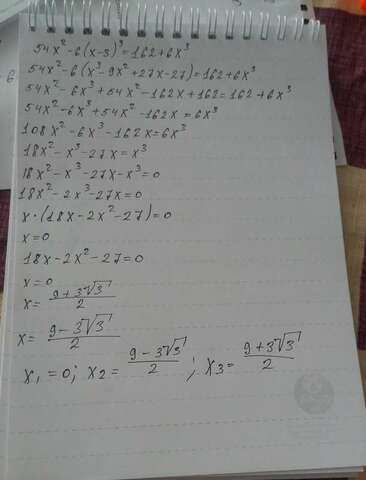 54x² - 6(x-3)³ = 162 + 6x³
54x² - 6(x³ - 9x² + 27x - 27) = 162 + 6x³
54x² - 6x³ + 54x² - 162x + 162 = 162 + 6x³
54x² - 6x³ + 54x² - 162x = 6x³
108x² - 6x³ - 162x = 6x³
18x² - x³ - 27x = x³
18x² - x³ - 27x - x³ = 0
18x² - 2x³ - 27x = 0
x · (18x - 2x² - 27) = 0
x = 0
18x - 2x² - 27 = 0
x = 0
x = (9 + 3√3)/2
x = (9 - 3√3)/2
x₁ = 0; x₂ = (9 - 3√3)/2; x₃ = (9 + 3√3)/2